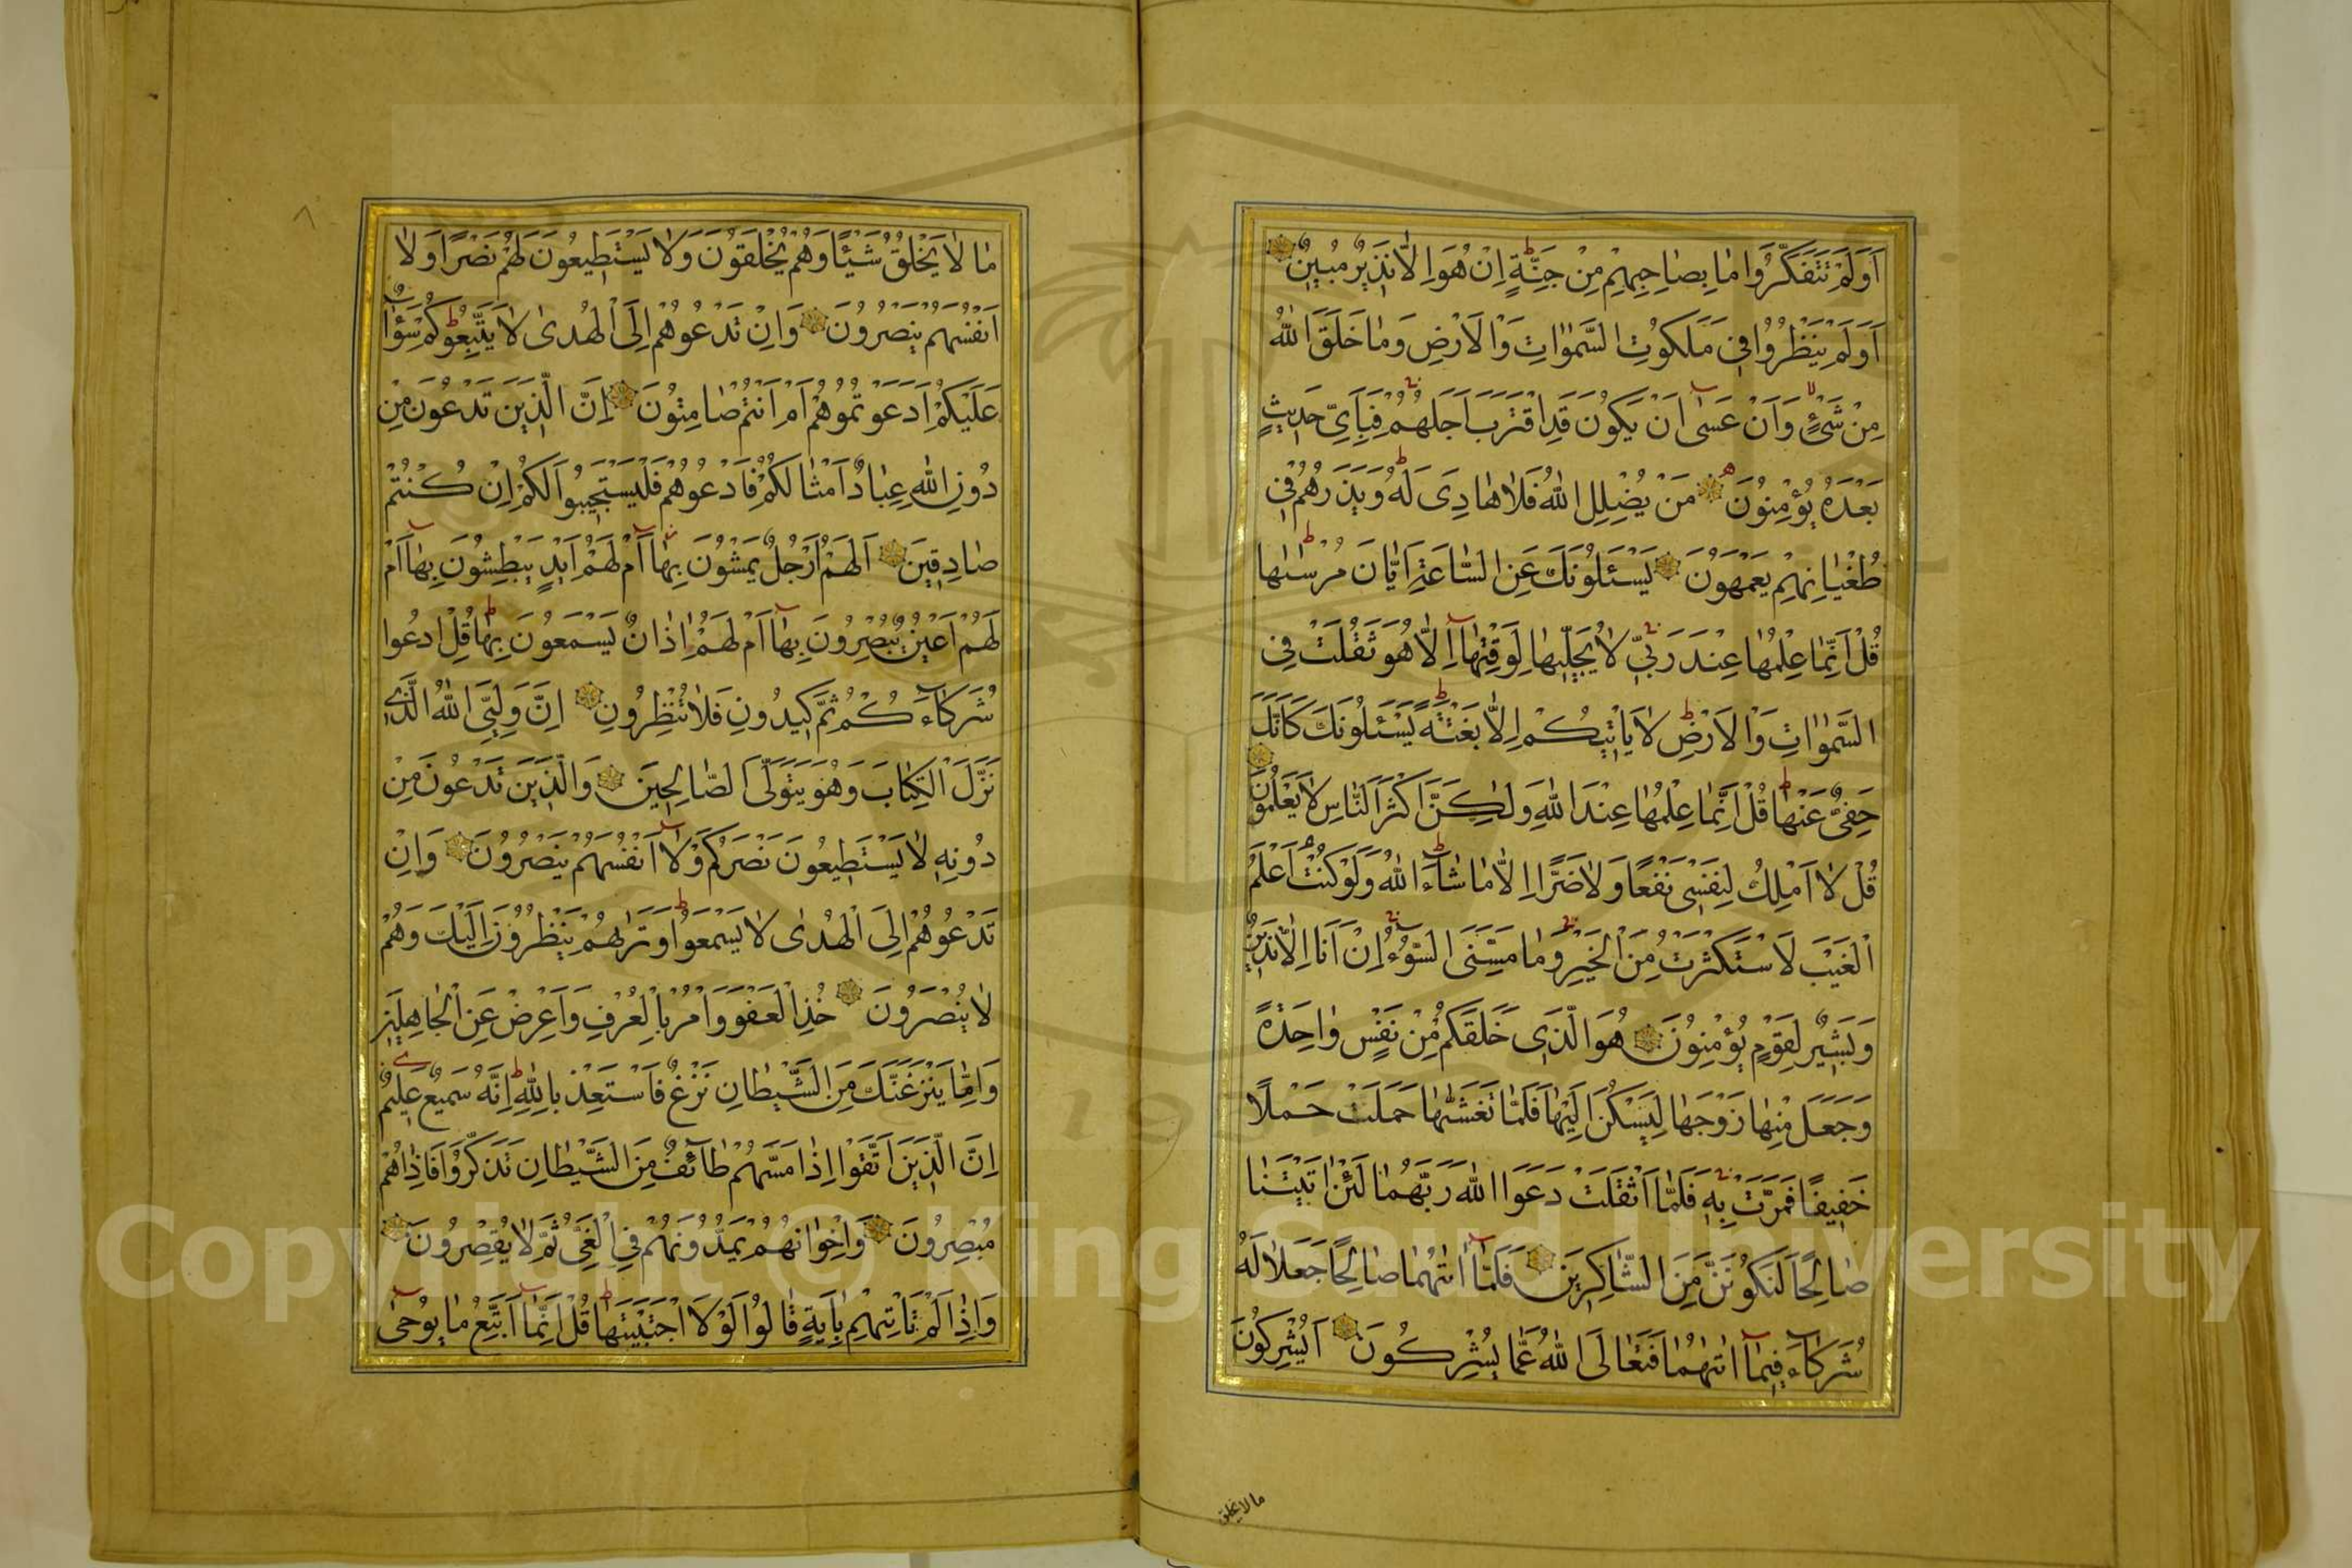 اَوَلَمْ يَتَفَكَّرُوا مَا بِصَاحِبِهِمْ مِنْ جِنَّةٍ اِنْ هُوَ اِلَّا نَذِيرٌ مُبِينٌ
اَوَلَمْ يَنْظُرُوا فِي مَلَكُوتِ السَّمٰوَاتِ وَالْاَرْضِ وَمَا خَلَقَ اللّٰهُ
مِنْ شَيْءٍ وَاَنْ عَسٰى اَنْ يَكُونَ قَدِ اقْتَرَبَ اَجَلُهُمْ فَبِاَيِّ حَدِيثٍ
بَعْدَهُ يُؤْمِنُونَ مَنْ يُضْلِلِ اللّٰهُ فَلَا هَادِيَ لَهُ وَيَذَرُهُمْ فِي
طُغْيَانِهِمْ يَعْمَهُونَ يَسْئَلُونَكَ عَنِ السَّاعَةِ اَيَّانَ مُرْسٰيهَا
قُلْ اِنَّمَا عِلْمُهَا عِنْدَ رَبِّي لَا يُجَلِّيهَا لِوَقْتِهَا اِلَّا هُوَ ثَقُلَتْ فِي
السَّمٰوَاتِ وَالْاَرْضِ لَا يَاْتِيكُمْ اِلَّا بَغْتَةً يَسْئَلُونَكَ كَاَنَّكَ
حَفِيٌّ عَنْهَا قُلْ اِنَّمَا عِلْمُهَا عِنْدَ اللّٰهِ وَلٰكِنَّ اَكْثَرَ النَّاسِ لَا يَعْلَمُونَ
قُلْ لَا اَمْلِكُ لِنَفْسِي نَفْعًا وَلَا ضَرًّا اِلَّا مَا شَاءَ اللّٰهُ وَلَوْ كُنْتُ اَعْلَمُ
الْغَيْبَ لَاسْتَكْثَرْتُ مِنَ الْخَيْرِ وَمَا مَسَّنِيَ السُّوءُ اِنْ اَنَا اِلَّا نَذِيرٌ
وَبَشِيرٌ لِقَوْمٍ يُؤْمِنُونَ هُوَ الَّذِي خَلَقَكُمْ مِنْ نَفْسٍ وَاحِدَةٍ
وَجَعَلَ مِنْهَا زَوْجَهَا لِيَسْكُنَ اِلَيْهَا فَلَمَّا تَغَشّٰيهَا حَمَلَتْ حَمْلًا
خَفِيفًا فَمَرَّتْ بِهِ فَلَمَّا اَثْقَلَتْ دَعَوَا اللّٰهَ رَبَّهُمَا لَئِنْ اٰتَيْتَنَا
صَالِحًا لَنَكُونَنَّ مِنَ الشَّاكِرِينَ فَلَمَّا اٰتٰيهُمَا صَالِحًا جَعَلَا لَهُ
شُرَكَاءَ فِيمَا اٰتٰيهُمَا فَتَعَالَى اللّٰهُ عَمَّا يُشْرِكُونَ اَيُشْرِكُونَ
ما لا يخلق
مَا لَا يَخْلُقُ شَيْئًا وَهُمْ يُخْلَقُونَ وَلَا يَسْتَطِيعُونَ لَهُمْ نَصْرًا وَلَا
اَنْفُسَهُمْ يَنْصُرُونَ وَاِنْ تَدْعُوهُمْ اِلَى الْهُدٰى لَا يَتَّبِعُوكُمْ سَوَاءٌ
عَلَيْكُمْ اَدَعَوْتُمُوهُمْ اَمْ اَنْتُمْ صَامِتُونَ اِنَّ الَّذِينَ تَدْعُونَ مِنْ
دُونِ اللّٰهِ عِبَادٌ اَمْثَالُكُمْ فَادْعُوهُمْ فَلْيَسْتَجِيبُوا لَكُمْ اِنْ كُنْتُمْ
صَادِقِينَ اَلَهُمْ اَرْجُلٌ يَمْشُونَ بِهَا اَمْ لَهُمْ اَيْدٍ يَبْطِشُونَ بِهَا اَمْ
لَهُمْ اَعْيُنٌ يُبْصِرُونَ بِهَا اَمْ لَهُمْ اٰذَانٌ يَسْمَعُونَ بِهَا قُلِ ادْعُوا
شُرَكَاءَكُمْ ثُمَّ كِيدُونِ فَلَا تُنْظِرُونِ اِنَّ وَلِيِّيَ اللّٰهُ الَّذِي
نَزَّلَ الْكِتَابَ وَهُوَ يَتَوَلَّى الصَّالِحِينَ وَالَّذِينَ تَدْعُونَ مِنْ
دُونِهِ لَا يَسْتَطِيعُونَ نَصْرَكُمْ وَلَا اَنْفُسَهُمْ يَنْصُرُونَ وَاِنْ
تَدْعُوهُمْ اِلَى الْهُدٰى لَا يَسْمَعُوا وَتَرٰيهُمْ يَنْظُرُونَ اِلَيْكَ وَهُمْ
لَا يُبْصِرُونَ خُذِ الْعَفْوَ وَاْمُرْ بِالْعُرْفِ وَاَعْرِضْ عَنِ الْجَاهِلِينَ
وَاِمَّا يَنْزَغَنَّكَ مِنَ الشَّيْطَانِ نَزْغٌ فَاسْتَعِذْ بِاللّٰهِ اِنَّهُ سَمِيعٌ عَلِيمٌ
اِنَّ الَّذِينَ اتَّقَوْا اِذَا مَسَّهُمْ طَائِفٌ مِنَ الشَّيْطَانِ تَذَكَّرُوا فَاِذَا هُمْ
مُبْصِرُونَ وَاِخْوَانُهُمْ يَمُدُّونَهُمْ فِي الْغَيِّ ثُمَّ لَا يُقْصِرُونَ
وَاِذَا لَمْ تَاْتِهِمْ بِاٰيَةٍ قَالُوا لَوْلَا اجْتَبَيْتَهَا قُلْ اِنَّمَا اَتَّبِعُ مَا يُوحٰى
Copyright © King Saud University